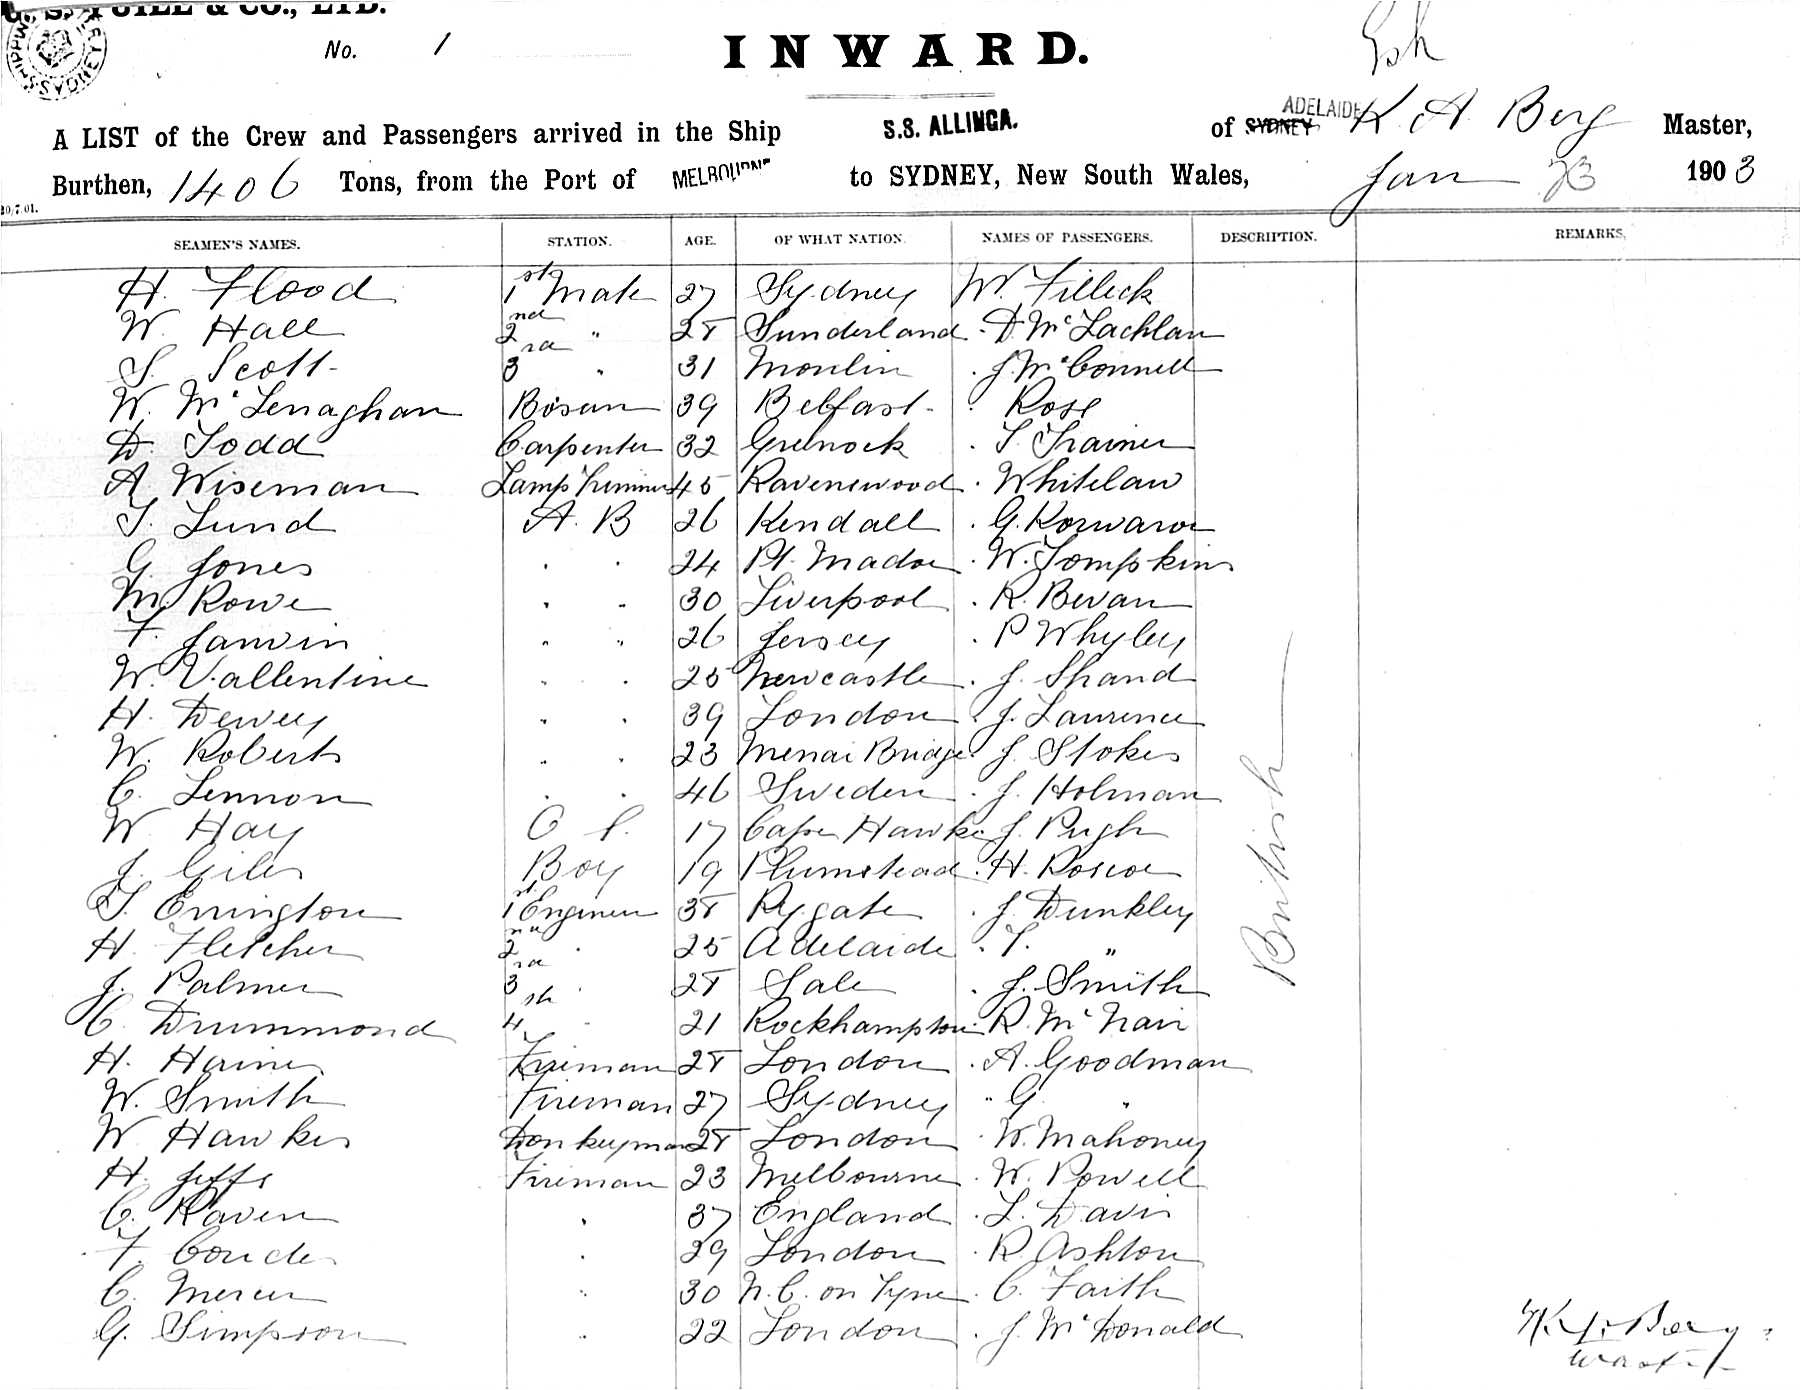 & CO., LTD.
No. 1
INWARD.
A LIST of the Crew and Passengers arrived in the Ship S.S. ALLINGA. of SYDNEY ADELAIDE K. A. Berg Master,
Burthen, 1406 Tons, from the Port of MELBOURNE to SYDNEY, New South Wales, Jan 23 1903
20/7/01.
SEAMEN'S NAMES. STATION. AGE. OF WHAT NATION. NAMES OF PASSENGERS. DESCRIPTION. REMARKS.
H. Flood 1st Mate 27 Sydney W. Filleck
W. Hall 2nd " 28 Sunderland D. McLachlan
S. Scott 3rd " 31 Moulin J. McConnell
W. McLenaghan Bosun 39 Belfast Rose
D. Todd Carpenter 32 Greenock T. Trainer
A. Wiseman Lamp Trimmer 45 Ravenswood Whitelaw
T. Lund A. B 26 Kendall G.
G. Jones " " 24 Pt. Madoc W. Tompkins
M. Rowe " " 30 Liverpool R. Bevan
F. Janvin " " 26 Jersey P Whyley
W. Vallentine " " 25 Newcastle J. Shand
H. Dewey " " 39 London J. Laurence
W. Roberts " " 23 Menai Bridge J. Stokes
C. Lennon " " 46 Sweden J. Holman
W. Hay O S. 17 Cape Hawke J. Pugh
J. Giles Boy 19 Plumstead H. Roscoe
T. Errington 1st Engineer 38 Rygate J. Dunkley
H. Fletcher 2nd " 25 Adelaide T. "
J. Palmer 3rd " 28 Sale J. Smith
C. Drummond 4th " 21 Rockhampton R. McNair
H. Haines Fireman 28 London A. Goodman
W. Smith Fireman 27 Sydney G "
W. Hawkes Donkeyman 28 London W. Mahoney
H. Jeffs Fireman 23 Melbourne W. Powell
C. Raven " 37 England L. Davis
F. Coude " 29 London R. Ashton
C. Mercer " 30 N. C. on Tyne C. Faith
G. Simpson " 22 London J. McDonald
British
Berg
Master